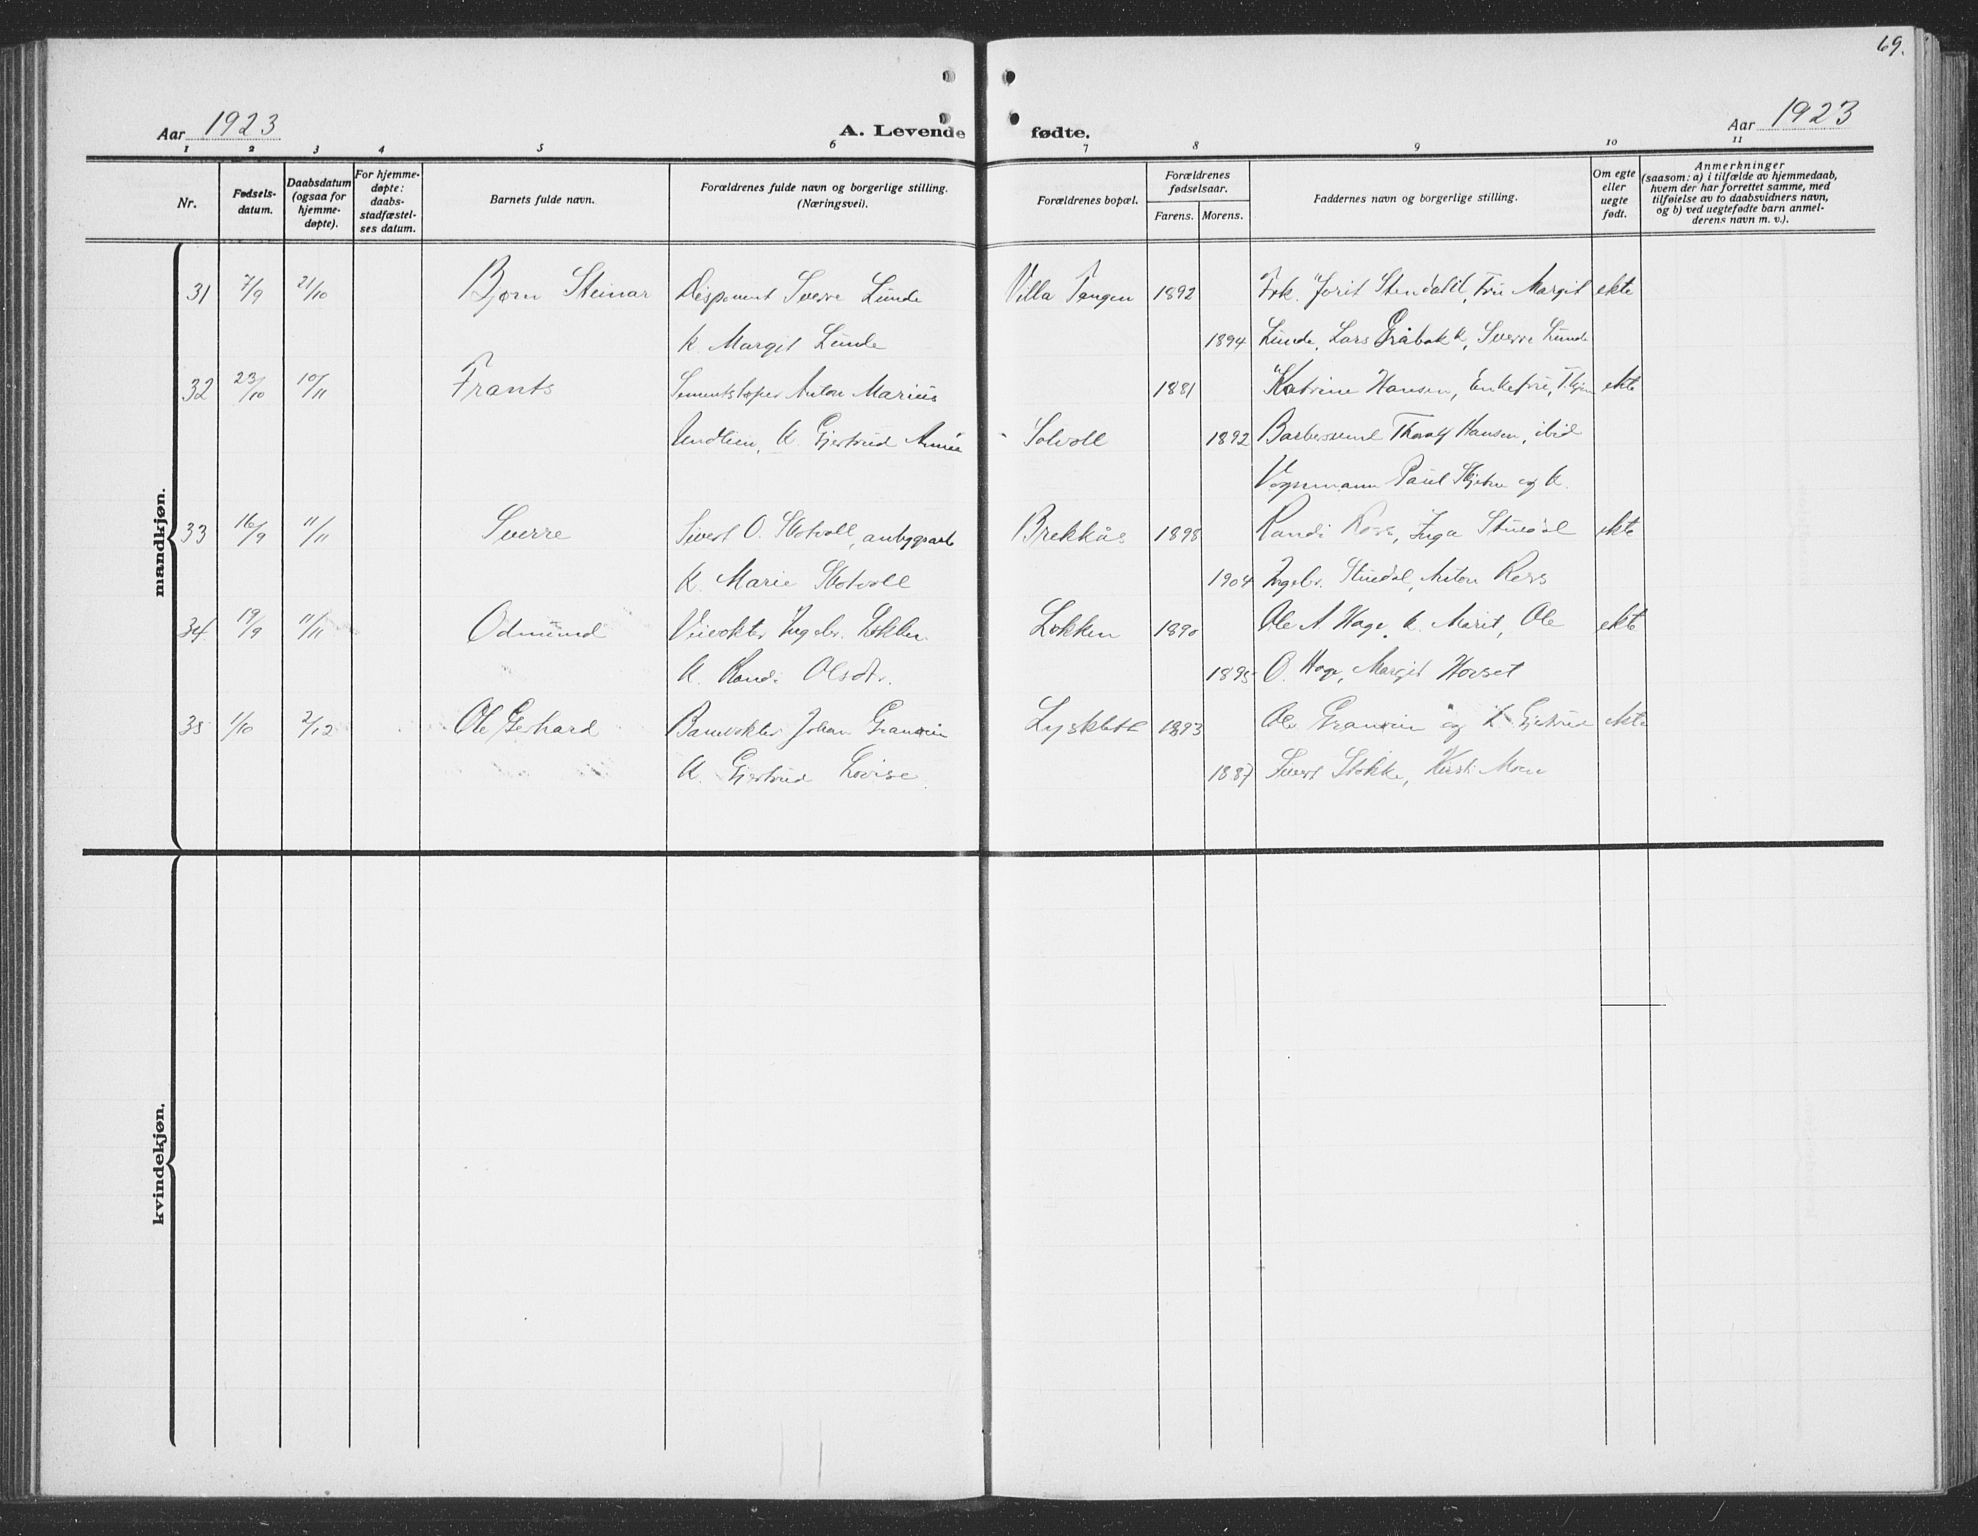 69.
Aar 1923
A. Levende fødte.
Aar 1923
1 2 3 4 5 6 7 8 9 10 11
Nr.
Fødsels-
datum.
Daabsdatum
(ogsaa for
hjemme-
døpte).
For hjemme-
døpte:
daabs-
stadfæstel-
ses datum.
Barnets fulde navn.
Forældrenes fulde navn og borgerlige stilling.
(Næringsvei).
Forældrenes bopæl.
Forældrenes
fødselsaar.
Farens. Morens.
Faddernes navn og borgerlige stilling.
Om egte
eller
uegte
født.
Anmerkninger
(saasom: a) i tilfælde av hjemmedaab,
hvem der har forrettet samme, med
tilføielse av to daabsvidners navn,
og b) ved uegtefødte barn anmel-
derens navn m. v.).
mandkjøn.
31 7/9 21/10 Bjørn Steinar Disponent Sverre Lunde Villa Tangen 1892 Frk. Jorit Stendahl, Fru Margit ekte
K. Margit Lunde 1894 Lunde, Lars Gråbakk, Sverre Lunde
32 23/10 10/11 Frants Sementstøper Anton Marius 1881 Katrine Hansen, Enkefru, ekte
K. Gjertrud Solvoll 1892 Hansen, ibid
Vognmann Paul og K.
33 16/9 11/11 Sverre Sivert O. Brekkås 1898 Randi Inga ekte
K. Marie 1904 Ingebr. Anton
34 19/9 11/11 Odmund Ingebr. Løkken Løkken 1890 Ole A Hage, K. Marit, Ole ekte
K. Randi Olsdtr. 1895 O. Hage, Margit
35 1/10 2/12 Ole Gerhard Banevokter Johan Lysklett 1893 Ole og K. Gjertrud ekte
K. Gjertrud Lovise 1887 Sivert Stokke, Kirsti Moen
kvindekjøn.